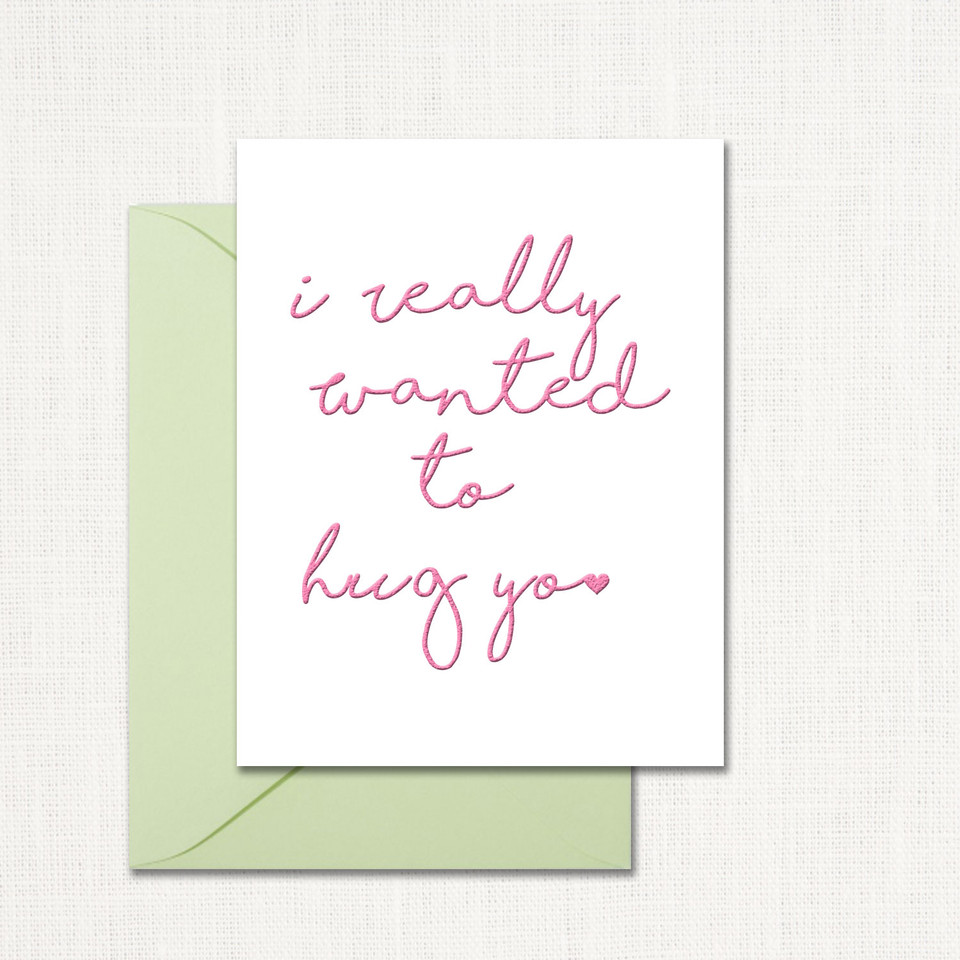 i really
wanted
to
hug yo♥